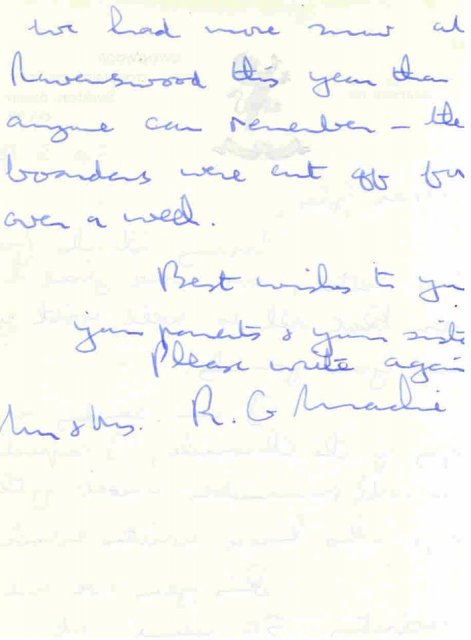 we had more snow at
Ravenswood this year than
anyone can remember – the
boarders were cut off for
over a week.
Best wishes to you
your parents & your siste
Please write again
Mr & Mrs. R. G